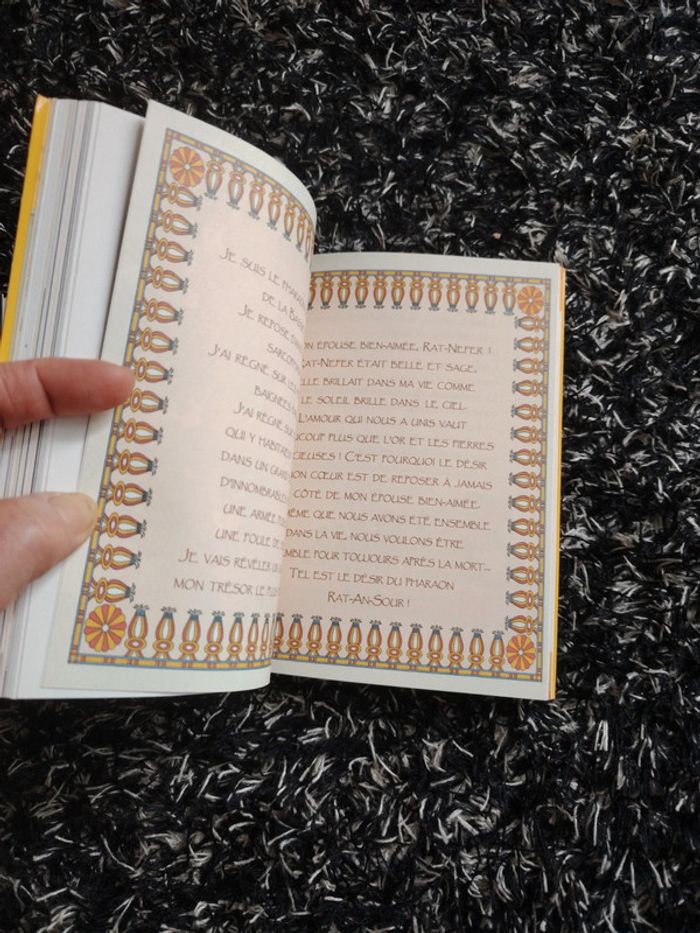 JE SUIS LE PHARAON
DE LA
JE REPOSE
J'AI RÉGNÉ SUR
BAIGNÉES
J'AI RÉGNÉ SUR
QUI Y
DANS UN GRAND
D'INNOMBRABLES
UNE ARMÉE
UNE FOULE DE
JE VAIS RÉVÉLER
MON TRÉSOR LE
ON ÉPOUSE BIEN-AIMÉE, RAT-NEFER !
RAT-NEFER ÉTAIT BELLE ET SAGE,
ELLE BRILLAIT DANS MA VIE COMME
LE SOLEIL BRILLE DANS LE CIEL.
L'AMOUR QUI NOUS A UNIS VAUT
UCOUP PLUS QUE L'OR ET LES PIERRES
CIEUSES ! C'EST POURQUOI LE DÉSIR
ON CŒUR EST DE REPOSER À JAMAIS
CÔTÉ DE MON ÉPOUSE BIEN-AIMÉE.
MÊME QUE NOUS AVONS ÉTÉ ENSEMBLE
DANS LA VIE, NOUS VOULONS ÊTRE
EMBLE POUR TOUJOURS APRÈS LA MORT...
TEL EST LE DÉSIR DU PHARAON
RAT-AN-SOUR !